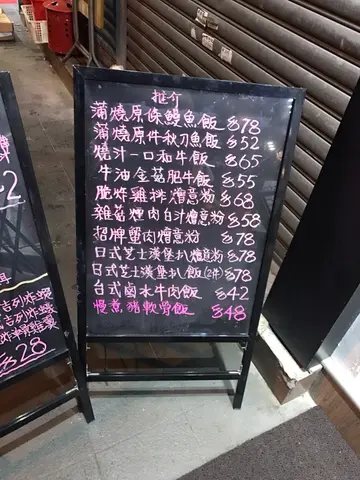 推介
蒲燒原條鰻魚飯 $78
蒲燒原件秋刀魚飯 $52
燒汁一口和牛飯 $65
牛油金菇肥牛飯 $55
脆炸雞排燴意粉 $68
雜菇煙肉白汁燴意粉 $58
招牌蟹肉燴意粉 $78
日式芝士漢堡扒燴意粉 $78
日式芝士漢堡扒飯(2件) $78
台式鹵水牛肉飯 $42
慢煮豬軟骨飯 $48
2
吉列炸蝦
$28